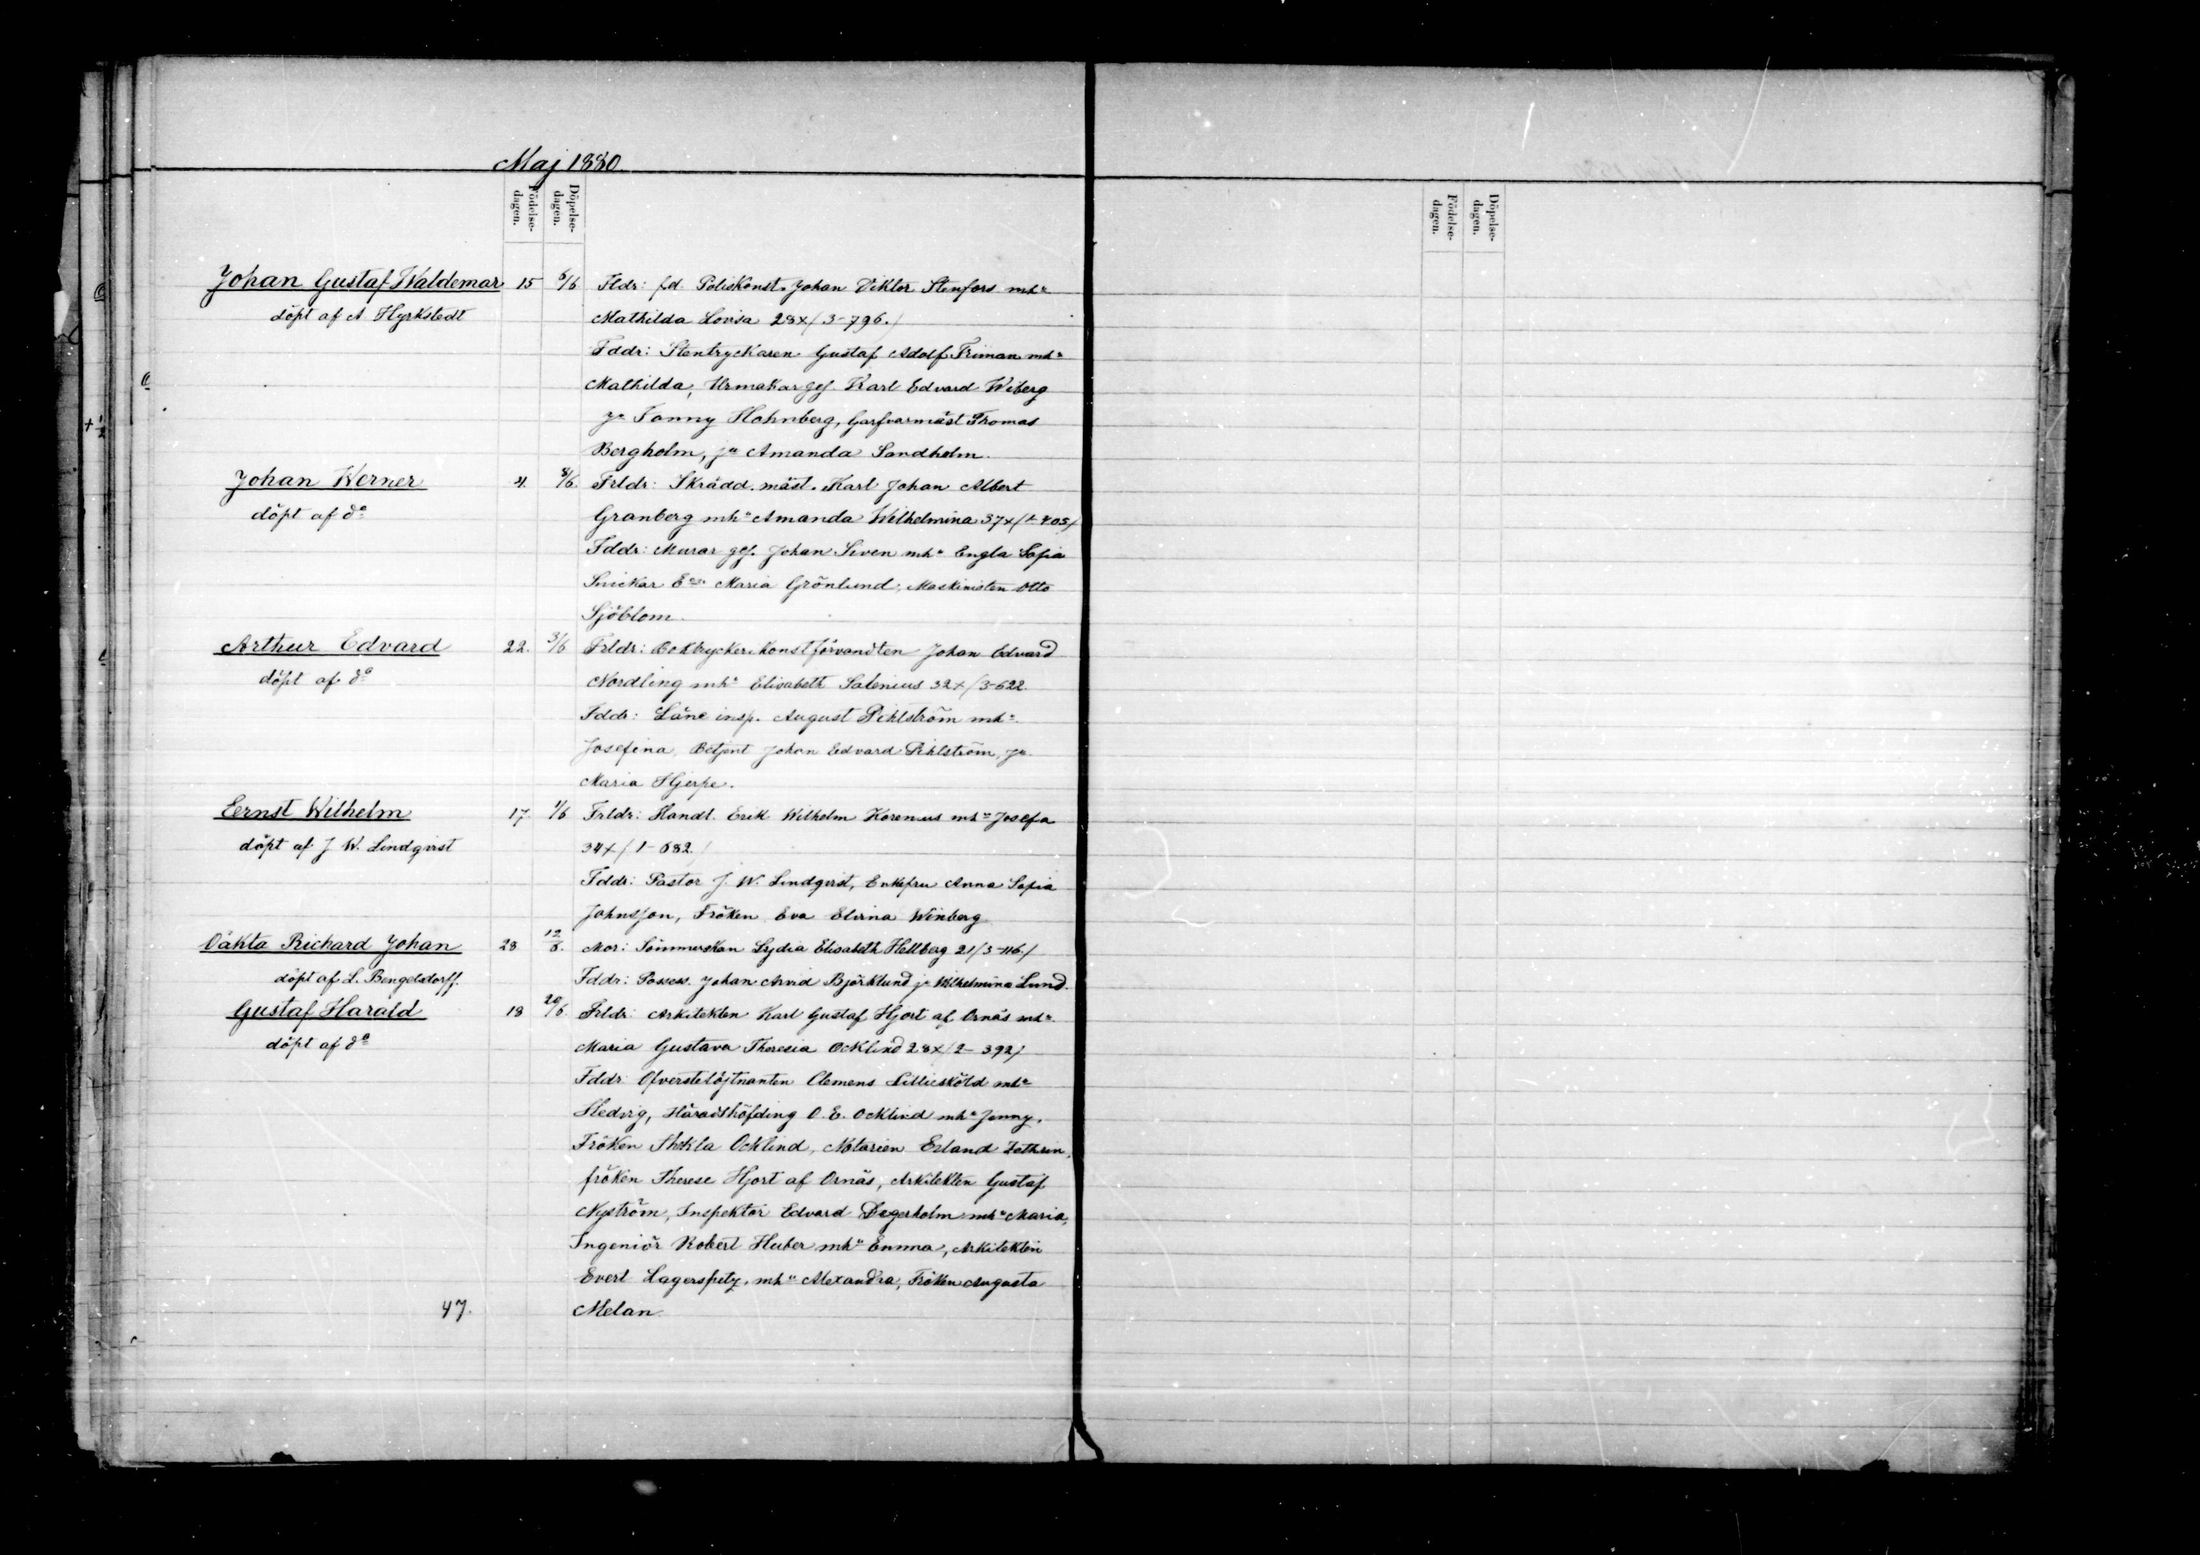 Maj 1880.
Födelse-
dagen.
Döpelse-
dagen.
Födelse-
dagen.
Döpelse-
dagen.
Johan Gustaf Waldemar 15 6/6 Fldr: f.d. Poliskonst. Johan Viktor Stenfors mha
döpt af A Hyrkstedt Mathilda Lovisa 28x/3-796./
Fddr: Stentryckaren Gustaf Adolf Friman mha
Mathilda, Urmakar gef. Karl Edvard Wiberg
ja Fanny Hohnberg, Garfvarmäst Thomas
Bergholm, ja Amanda Sandholm.
Johan Werner 4. 8/6. Frldr: Skrädd. mäst. Karl Johan Albert
döpt af do Granberg mha Amanda Wilhelmina 37x/1-405/
Fddr: Murar gef. Johan Siven mha Engla Sofia
Snickar Ea Maria Grönlund, Maskinisten Otto
Sjöblom.
Arthur Edvard 22. 3/6 Frldr: Boktryckerikonstförvandten Johan Edvard
döpt af do Nordling mha Elisabeth Salenius 32x/3-622.
Fddr: Läne insp. August Pihlström mha
Josefina, Betjent Johan Edvard Pihlström, ja
Maria Hjerpe.
Ernst Wilhelm 17. 1/6 Frldr: Handl. Erik Wilhelm Korenius mha Josefa
döpt af J W. Lindqvist 34x/1-682./
Fddr: Pastor J. W. Lindqvist, Enkefru Anna Sofia
Johnsson, Fröken Eva Elvina Winberg
Oäkta Richard Johan 28 12/6. Mor: Sömmerskan Lydia Elisabeth Hellberg 21/3-116./
döpt af L. Bengelsdorff. Fddr: Possess. Johan Arvid Björklund ja Wilhelmina Lund.
Gustaf Harald 18 20/6. Frldr: Arkitekten Karl Gustaf Hjort af Ornäs mha
döpt af do Maria Gustava Theresia Ocklind 28x/2-392/
Fddr: Öfverstelöjtnanten Clemens Lilliesköld mha
Hedvig, Häradshöfding O. E. Ocklind mha Jenny,
Fröken Thekla Ocklind, Notarien Erland Zethrin,
fröken Therese Hjort af Ornäs, Arkitekten Gustaf
Nyström, Inspektor Edvard Degerholm mha Maria,
Ingeniör Robert Huber mha Emma, Arkitekten
Evert Lagerspetz, mha Alexandra, Fröken Augusta
47. Melan